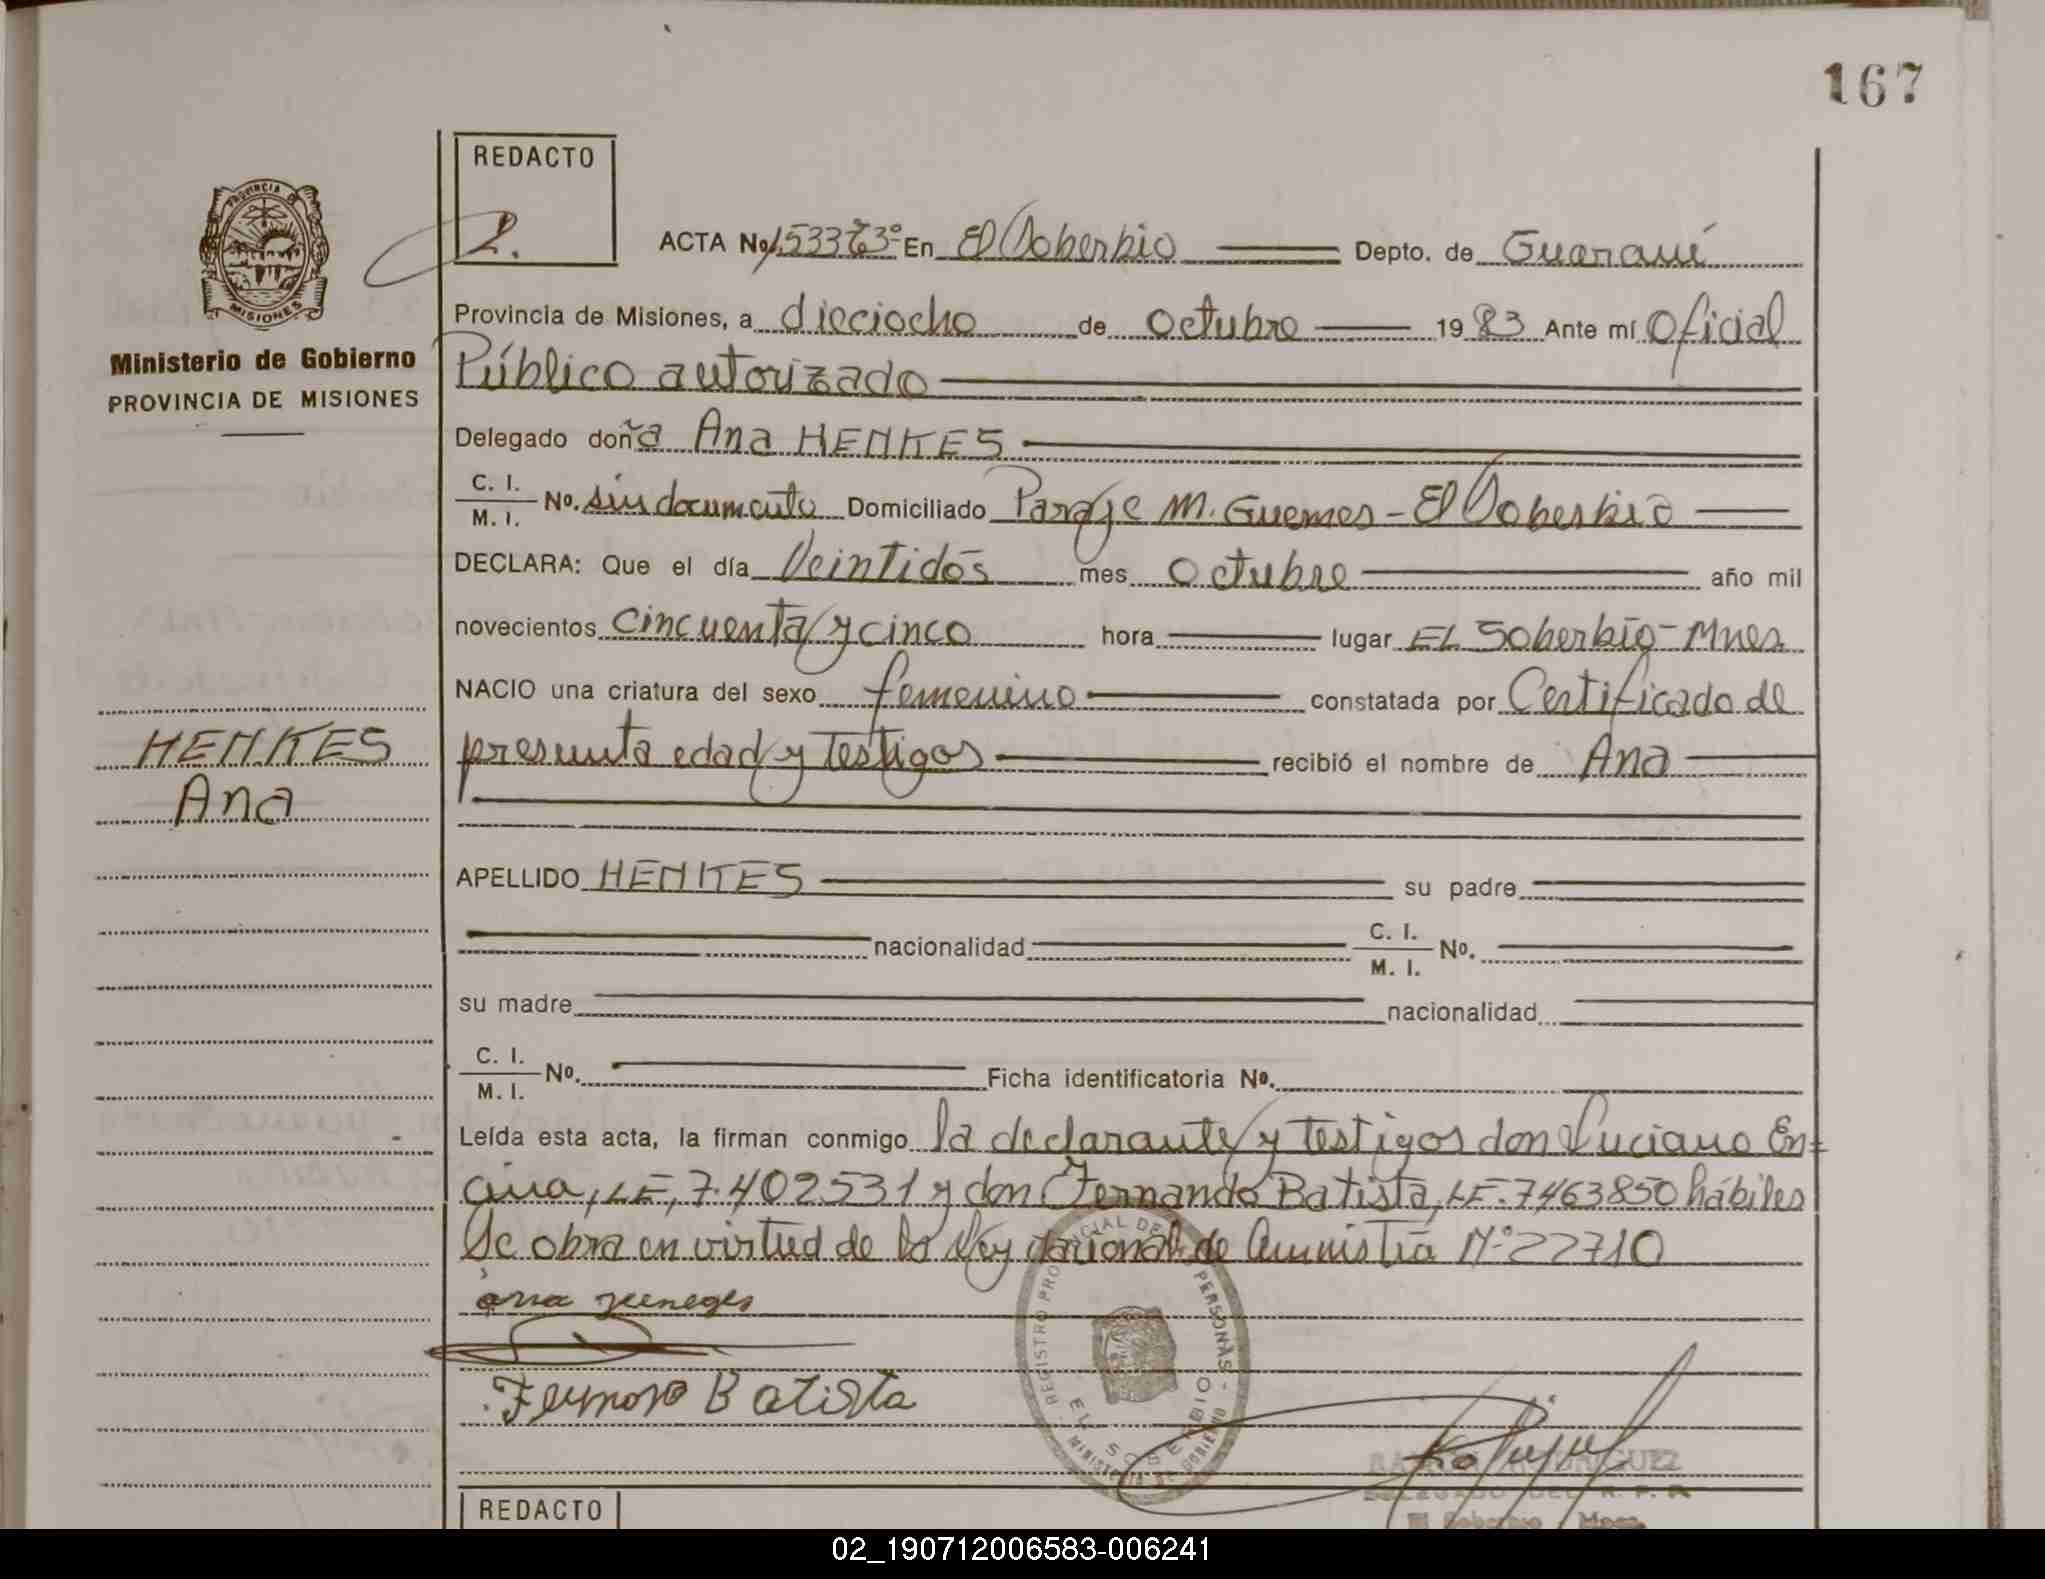 167
REDACTO
2.
PROVINCIA
MISIONES
Ministerio de Gobierno
PROVINCIA DE MISIONES
HENKES
Ana
ACTA Nº En El Soberbio Depto. de Guaraní
Provincia de Misiones, a dieciocho de octubre 1983 Ante mí Oficial
Público autorizado
Delegado doña Ana HENKES
C. I.
M. I. Nº. sin documento Domiciliado Paraje M. Guemes - El Soberbio
DECLARA: Que el día Veintidós mes octubre año mil
novecientos cincuenta y cinco hora lugar EL Soberbio - Mnes
NACIO una criatura del sexo femenino constatada por Certificado de
presunta edad y testigos recibió el nombre de Ana
APELLIDO HENKES su padre
nacionalidad C. I.
M. I. Nº.
su madre nacionalidad
C. I.
M. I. Nº. Ficha identificatoria Nº.
Leída esta acta, la firman conmigo la declarante y testigos don Luciano En-
cina, LE, 7.402531 y don Fernando Batista, LE. 7463850 hábiles
Se obra en virtud de la Ley Nacional de Amnistía Nº 22710
Batista
REGISTRO PROVINCIAL DE PERSONAS
EL SOBERBIO
MINISTERIO DE GOBIERNO
DELEGADO DEL R. P. P.
El Soberbio Mnes.
REDACTO
02_190712006583-006241